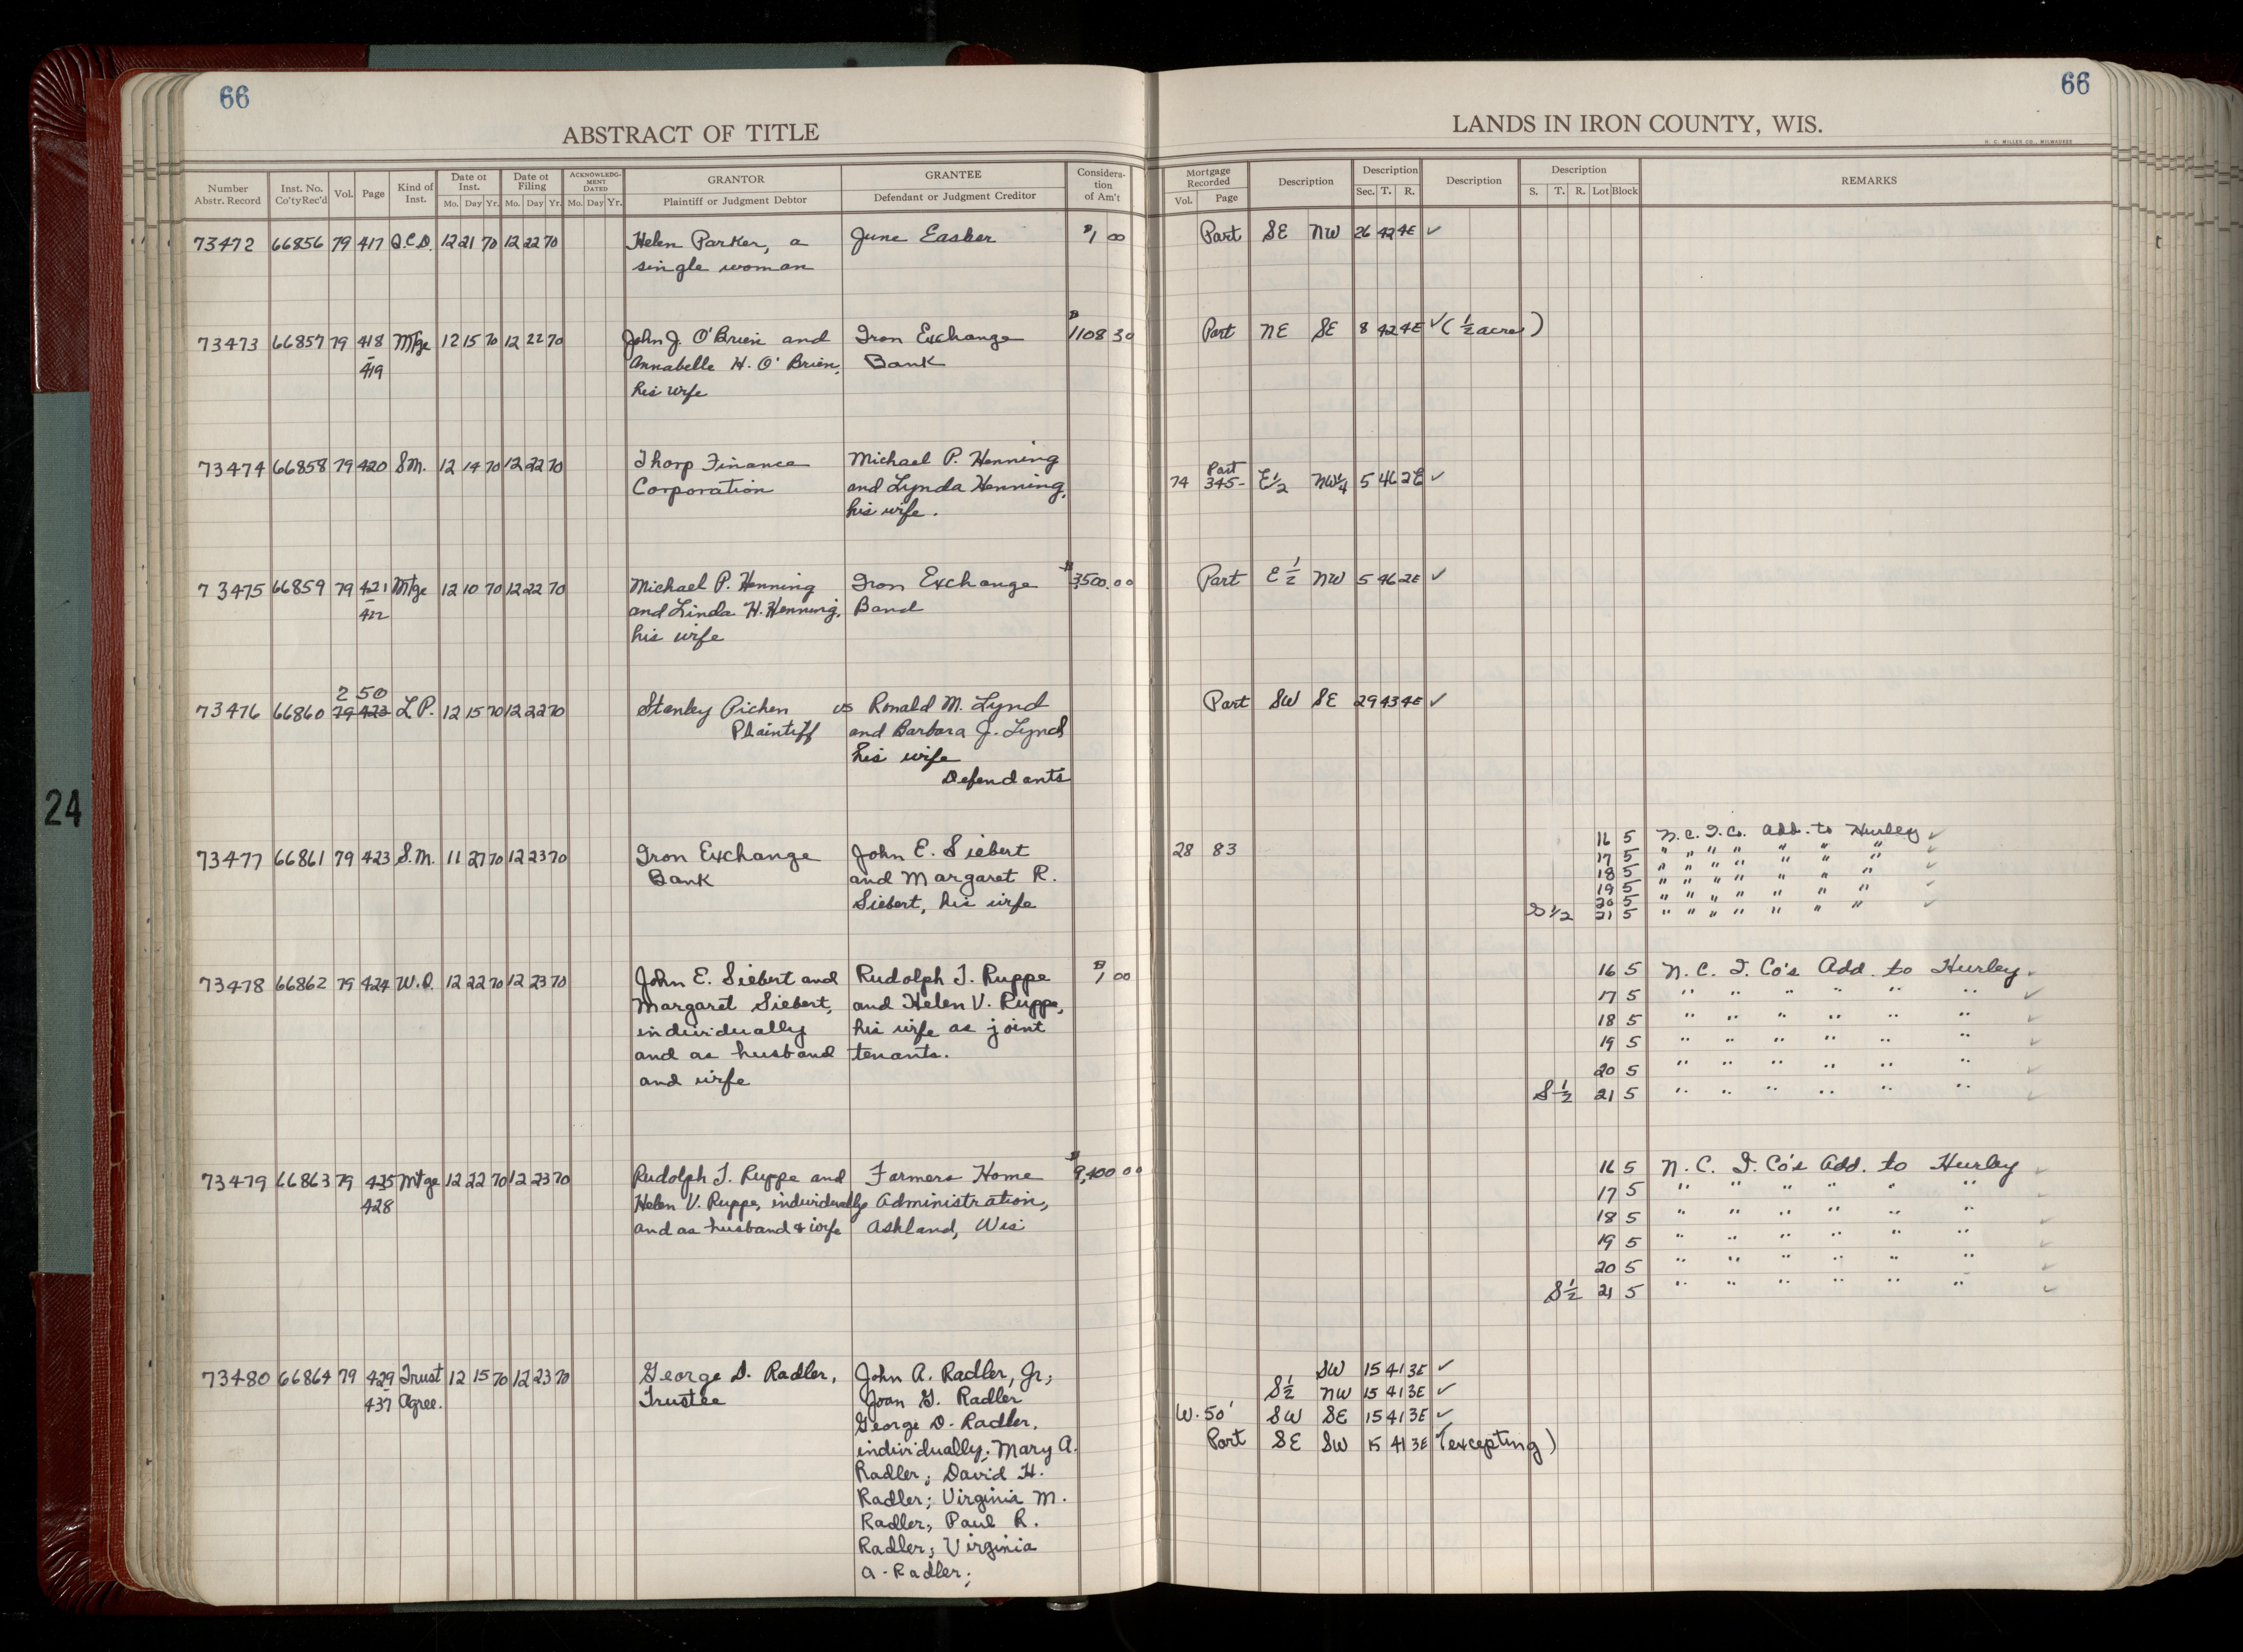 66
66
ABSTRACT OF TITLE
LANDS IN IRON COUNTY, WIS.
H. C. MILLER CO., MILWAUKEE
Number Abstr. Record | Inst. No. Co'ty Rec'd | Vol. | Page | Kind of Inst. | Date of Inst. Mo. Day Yr. | Date of Filing Mo. Day Yr. | ACKNOWLEDGMENT DATED Mo. Day Yr. | GRANTOR Plaintiff or Judgment Debtor | GRANTEE Defendant or Judgment Creditor | Consideration of Am't | Mortgage Recorded Vol. Page | Description | Description Sec. T. R. | Description | Description S. T. R. Lot Block | REMARKS
73472 66856 79 417 Q.C.D. 12 21 70 12 22 70 Helen Parker, a June Easker $1 00 Part SE NW 26 42 4E ✓
single woman
73473 66857 79 418 Mtge 12 15 70 12 22 70 John J. O'Brien and Iron Exchange $1108 30 Part NE SE 8 42 4E ✓ (½ acre)
- 419 Annabelle H. O'Brien, Bank
his wife
73474 66858 79 420 SM. 12 14 70 12 22 70 Thorp Finance Michael P. Henning Part
Corporation and Lynda Henning, 74 345- E½ NW¼ 5 46 2E ✓
his wife.
73475 66859 79 421 Mtge 12 10 70 12 22 70 Michael P. Henning Iron Exchange $3,500.00 Part E½ NW 5 46 2E ✓
- 422 and Linda H. Henning, Band
his wife
2 50
73476 66860 79 422 L P. 12 15 70 12 22 70 Stanley Pichen vs Ronald M. Lynd Part SW SE 29 43 4E ✓
Plaintiff and Barbara J. Lynd
his wife
Defendants
73477 66861 79 423 S.M. 11 27 70 12 23 70 Iron Exchange John E. Siebert 28 83 16 5 N.C.I.Co. Add. to Hurley ✓
Bank and Margaret R. 17 5 " " " " " " " ✓
Siebert, his wife 18 5 " " " " " " " ✓
19 5 " " " " " " " ✓
20 5 " " " " " " "
S 1/2 21 5 " " " " " " " ✓
73478 66862 79 424 W.D. 12 22 70 12 23 70 John E. Siebert and Rudolph T. Ruppe $1 00 16 5 N. C. I. Co's Add. to Hurley ✓
Margaret Siebert, and Helen V. Ruppe, 17 5 " " " " " " ✓
individually his wife as joint 18 5 " " " " " " ✓
and as husband tenants. 19 5 " " " " " " ✓
and wife 20 5 " " " " " " ✓
S½ 21 5 " " " " " " ✓
73479 66863 79 425 Mtge 12 22 70 12 23 70 Rudolph T. Ruppe and Farmers Home $9,400 00 16 5 N. C. I. Co's Add. to Hurley ✓
428 Helen V. Ruppe, individually Administration, 17 5 " " " " " "
and as husband & wife Ashland, Wis 18 5 " " " " " " ✓
19 5 " " " " " " ✓
20 5 " " " " " " ✓
S½ 21 5 " " " " " " ✓
73480 66864 79 429 Trust 12 15 70 12 23 70 George D. Radler, John A. Radler, Jr; SW 15 41 3E ✓
- 437 Agree. Trustee Joan G. Radler S½ NW 15 41 3E ✓
George D. Radler, W. 50' SW SE 15 41 3E ✓
individually; Mary A. Part SE SW 15 41 3E (excepting)
Radler; David H.
Radler; Virginia M.
Radler; Paul R.
Radler; Virginia
A. Radler;
24